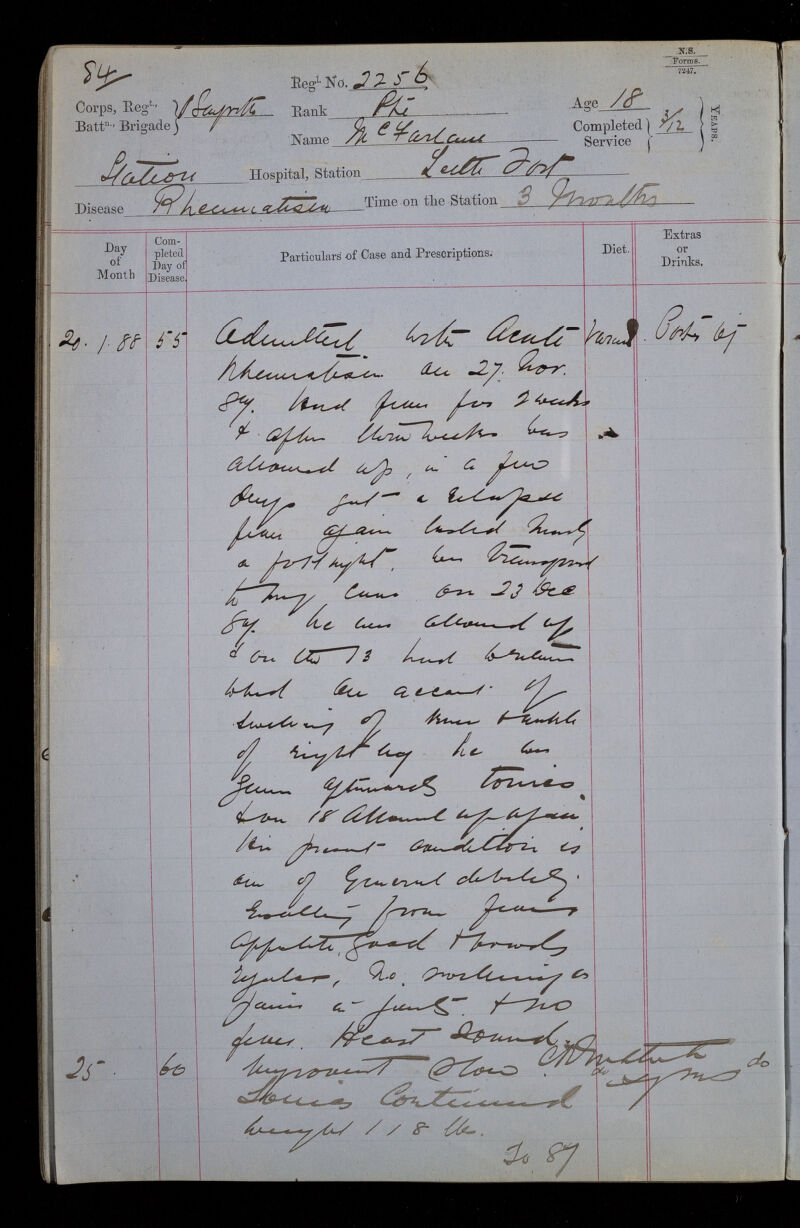 84
N.S.
Forms.
7247.
Regl. No. 2256
Corps, Regt.,
Battn., Brigade
Rank Pte
Age 18
Name McFarlane
Completed Service 3/12 YEARS.
Station Hospital, Station Leith Fort
Disease Rheumatism Time on the Station 3 Months
Day of Month
Completed Day of Disease.
Particulars of Case and Prescriptions.
Diet.
Extras or Drinks.
20.1.88 55 Admitted with Acute
Rheumatism on 27. Nov.
87. had fever for 2 weeks
& after three weeks was
allowed up, in a few
days got a relapse
fever again lasted nearly
a fortnight. was
to my care on 23 Dec
87. he was allowed up
& on the 13 had to return
to bed on account of
swelling of knee & ankle
of right leg he was
given afterwards tonics
& on 18 allowed up again
His present condition is
one of General debility
resulting from fever
appetite good & bowels
regular, no swelling or
pains in joints & no
fever. Heart Sound.
25. 60 Improvement slow do do
Tonics Continued
Weight 118 lbs.
To 87